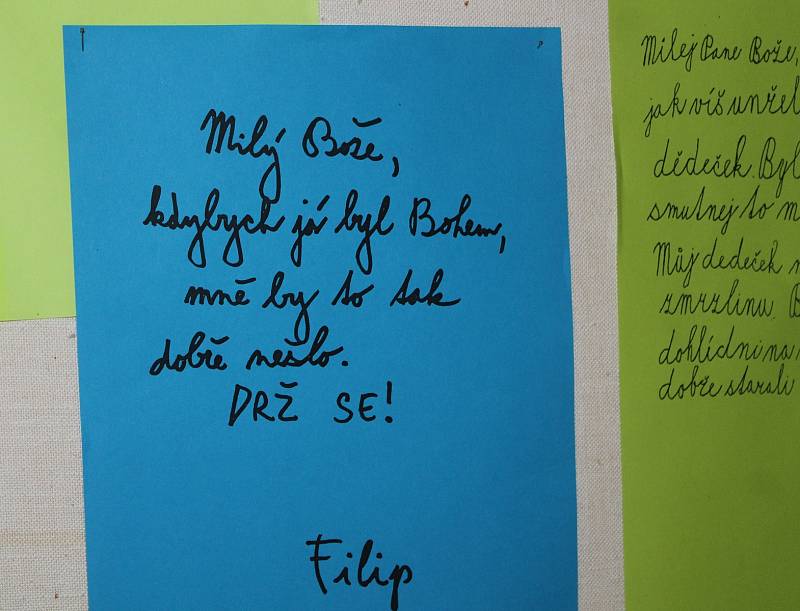 Milý Bože,
kdybych já byl Bohem,
mně by to tak
dobře nešlo.
DRŽ SE!
Filip
Milej Pane Bože,
jak víš umřel
dědeček. Byl
smutnej to
Můj dedeček
zmrzlinu.
dohlídni na
dobře starali